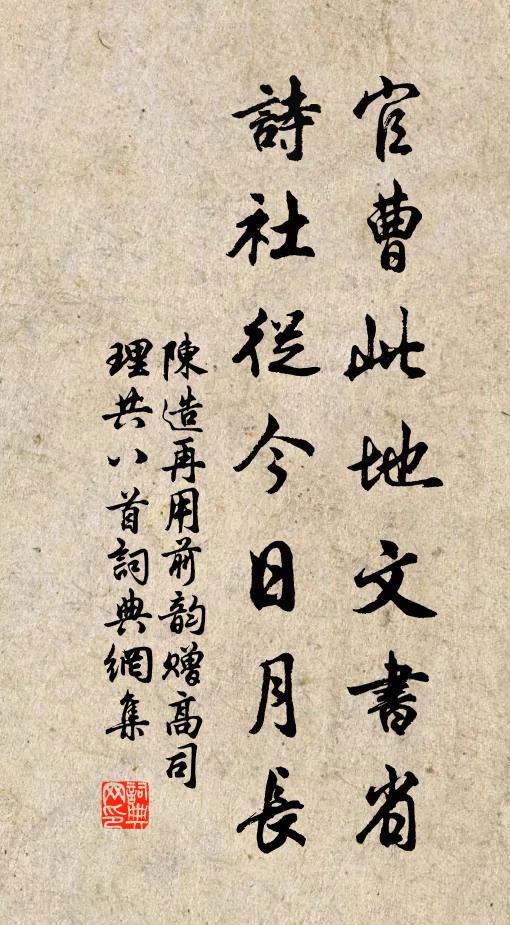 官曹此地文書省
詩社從今日月長
陳造再用前韵贈高司
理共八首詞典網集
詞典网印